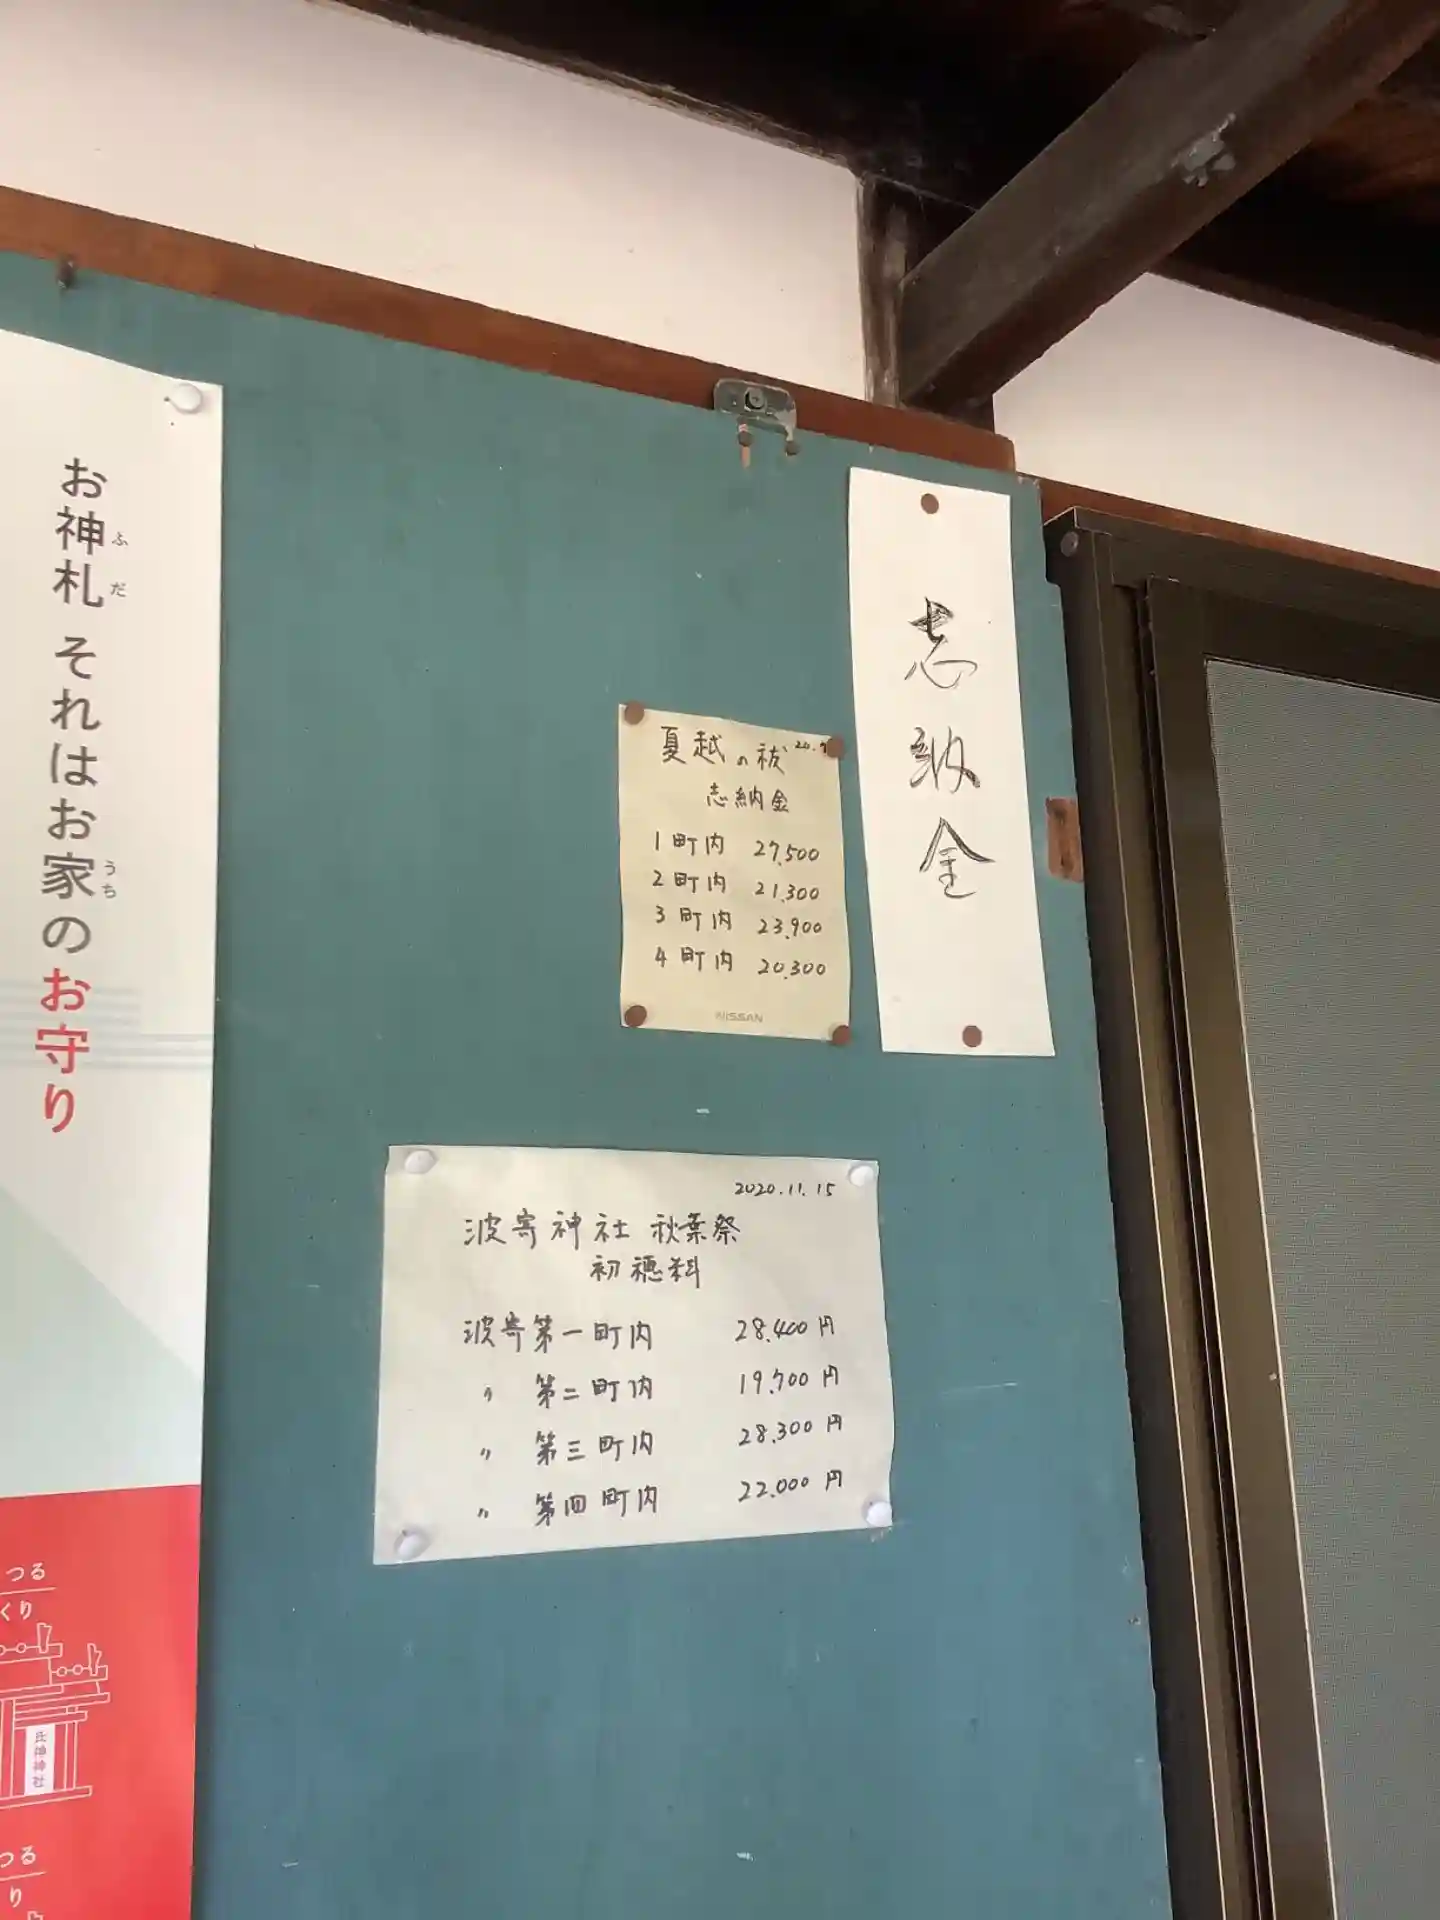 お神札 それはお家のお守り
ふだ
うち
つる
くり
氏神神社
つる
り
志納金
夏越の祓
志納金
1町内 27,500
2町内 21,300
3町内 23,900
4町内 20,300
NISSAN
2020.11.15
波寄神社 秋葉祭
初穂料
波寄第一町内 28,400円
〃 第二町内 19,700円
〃 第三町内 28,300円
〃 第四町内 22,000円